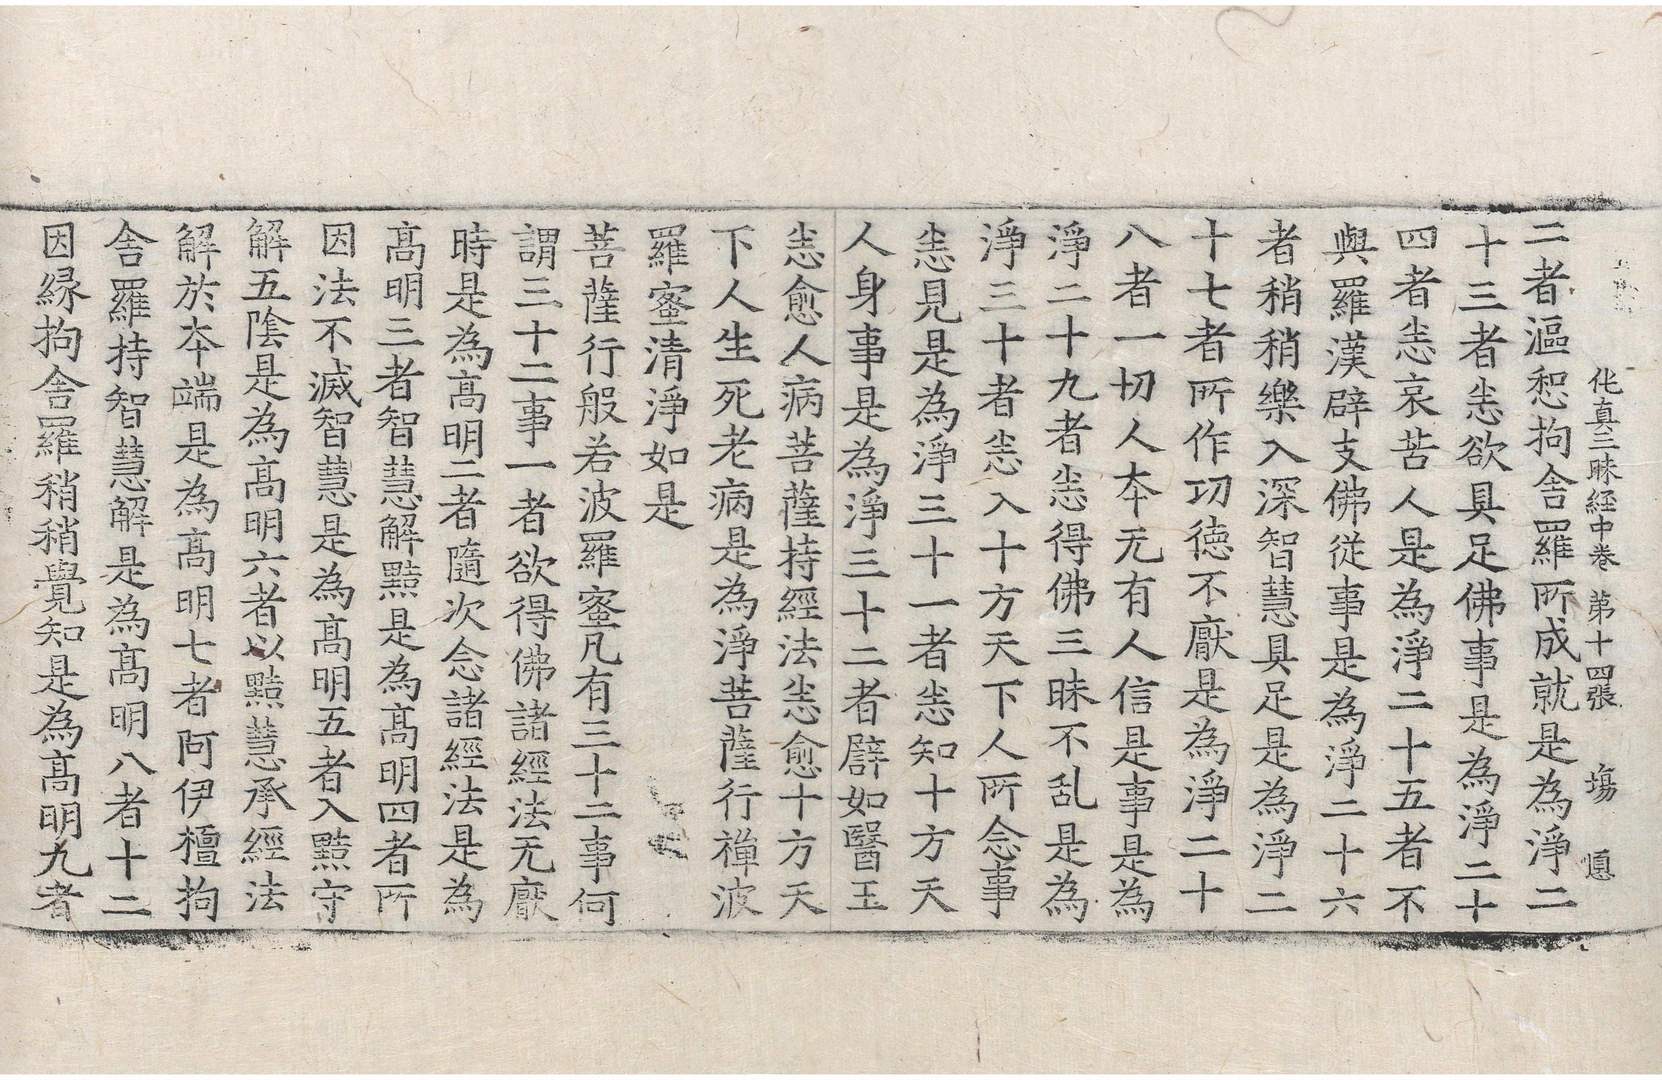 二者漚惒拘舍羅所成就是為淨二
十三者恙欲具足佛事是為淨二十
四者恙哀苦人是為淨二十五者不
與羅漢辟支佛從事是為淨二十六
者稍稍樂入深智慧具足是為淨二
十七者所作功徳不厭是為淨二十
八者一切人夲无有人信是事是為
淨二十九者恙得佛三昧不乱是為
淨三十者恙入十方天下人所念事
恙見是為淨三十一者恙知十方天
人身事是為淨三十二者譬如醫王
恙愈人病菩薩持經法恙愈十方天
下人生死老病是為淨菩薩行禪波
羅蜜清淨如是
菩薩行般若波羅蜜凡有三十二事何
謂三十二事一者欲得佛諸經法无厭
時是為髙明二者隨次念諸經法是為
髙明三者智慧解黠是為髙明四者所
因法不滅智慧是為髙明五者入黠守
解五陰是為髙明六者以黠慧承經法
解於夲端是為髙明七者阿伊檀拘
舍羅持智慧解是為髙明八者十二
因縁拘舍羅稍稍覺知是為髙明九者
他真三昧經中卷　第十四張　塲　㥲